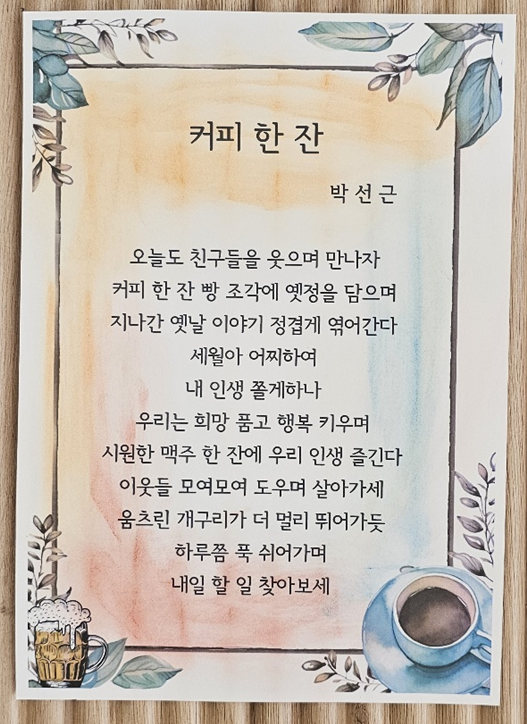 커피 한 잔
박 선 근
오늘도 친구들을 웃으며 만나자
커피 한 잔 빵 조각에 옛정을 담으며
지나간 옛날 이야기 정겹게 엮어간다
세월아 어찌하여
내 인생 쫄게하나
우리는 희망 품고 행복 키우며
시원한 맥주 한 잔에 우리 인생 즐긴다
이웃들 모여모여 도우며 살아가세
움츠린 개구리가 더 멀리 뛰어가듯
하루쯤 푹 쉬어가며
내일 할 일 찾아보세